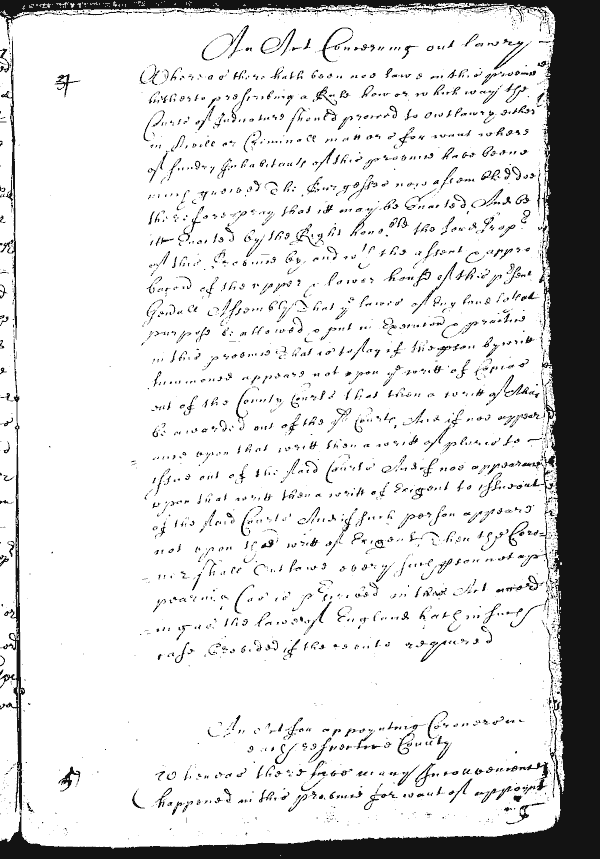 An Act Concerning outlawry
Whereas there hath been noe lawe in this province
hitherto prescribing a Rule how or which way the
Courts of Judicature should proceed to outlawry either
in Civill or Criminall matters for want where
of sundry Inhabitants of this province have beene
much grieved The Burgesses now assembled doe
therefore pray that itt may be Enacted, And be
itt Enacted by the Right hono.ble the Lord Prop.r
of this Province by and wth the assent & appro
bacon of the upper & lower house of this psent
Genall Assembly That ye lawes of England to that
purpose be allowed & put in Execucon & practice
in this province That is to say if the pson by writt
summoned appeare not upon ye writt of Capias
out of the County Courts that then a writt of Alias
be awarded out of the sd Courts, And if noe appear
ance upon that writt then a writt of pluries to
issue out of the said Courts And if noe appearance
upon that writt then a writt of Exigent to issue out
of the said Courts And if such person appeare
not upon the writt of Exigent, Then the Coro
ner shall Outlawe every such pson not ap
pearing (as is pscribed in this Act accord
ing as the lawes of England hath in such
case Provided if the required
An Act for appoynting Coroners in
each respective County
Whereas there have many Inconveniencies
happened in this province for want of appoynt
ing